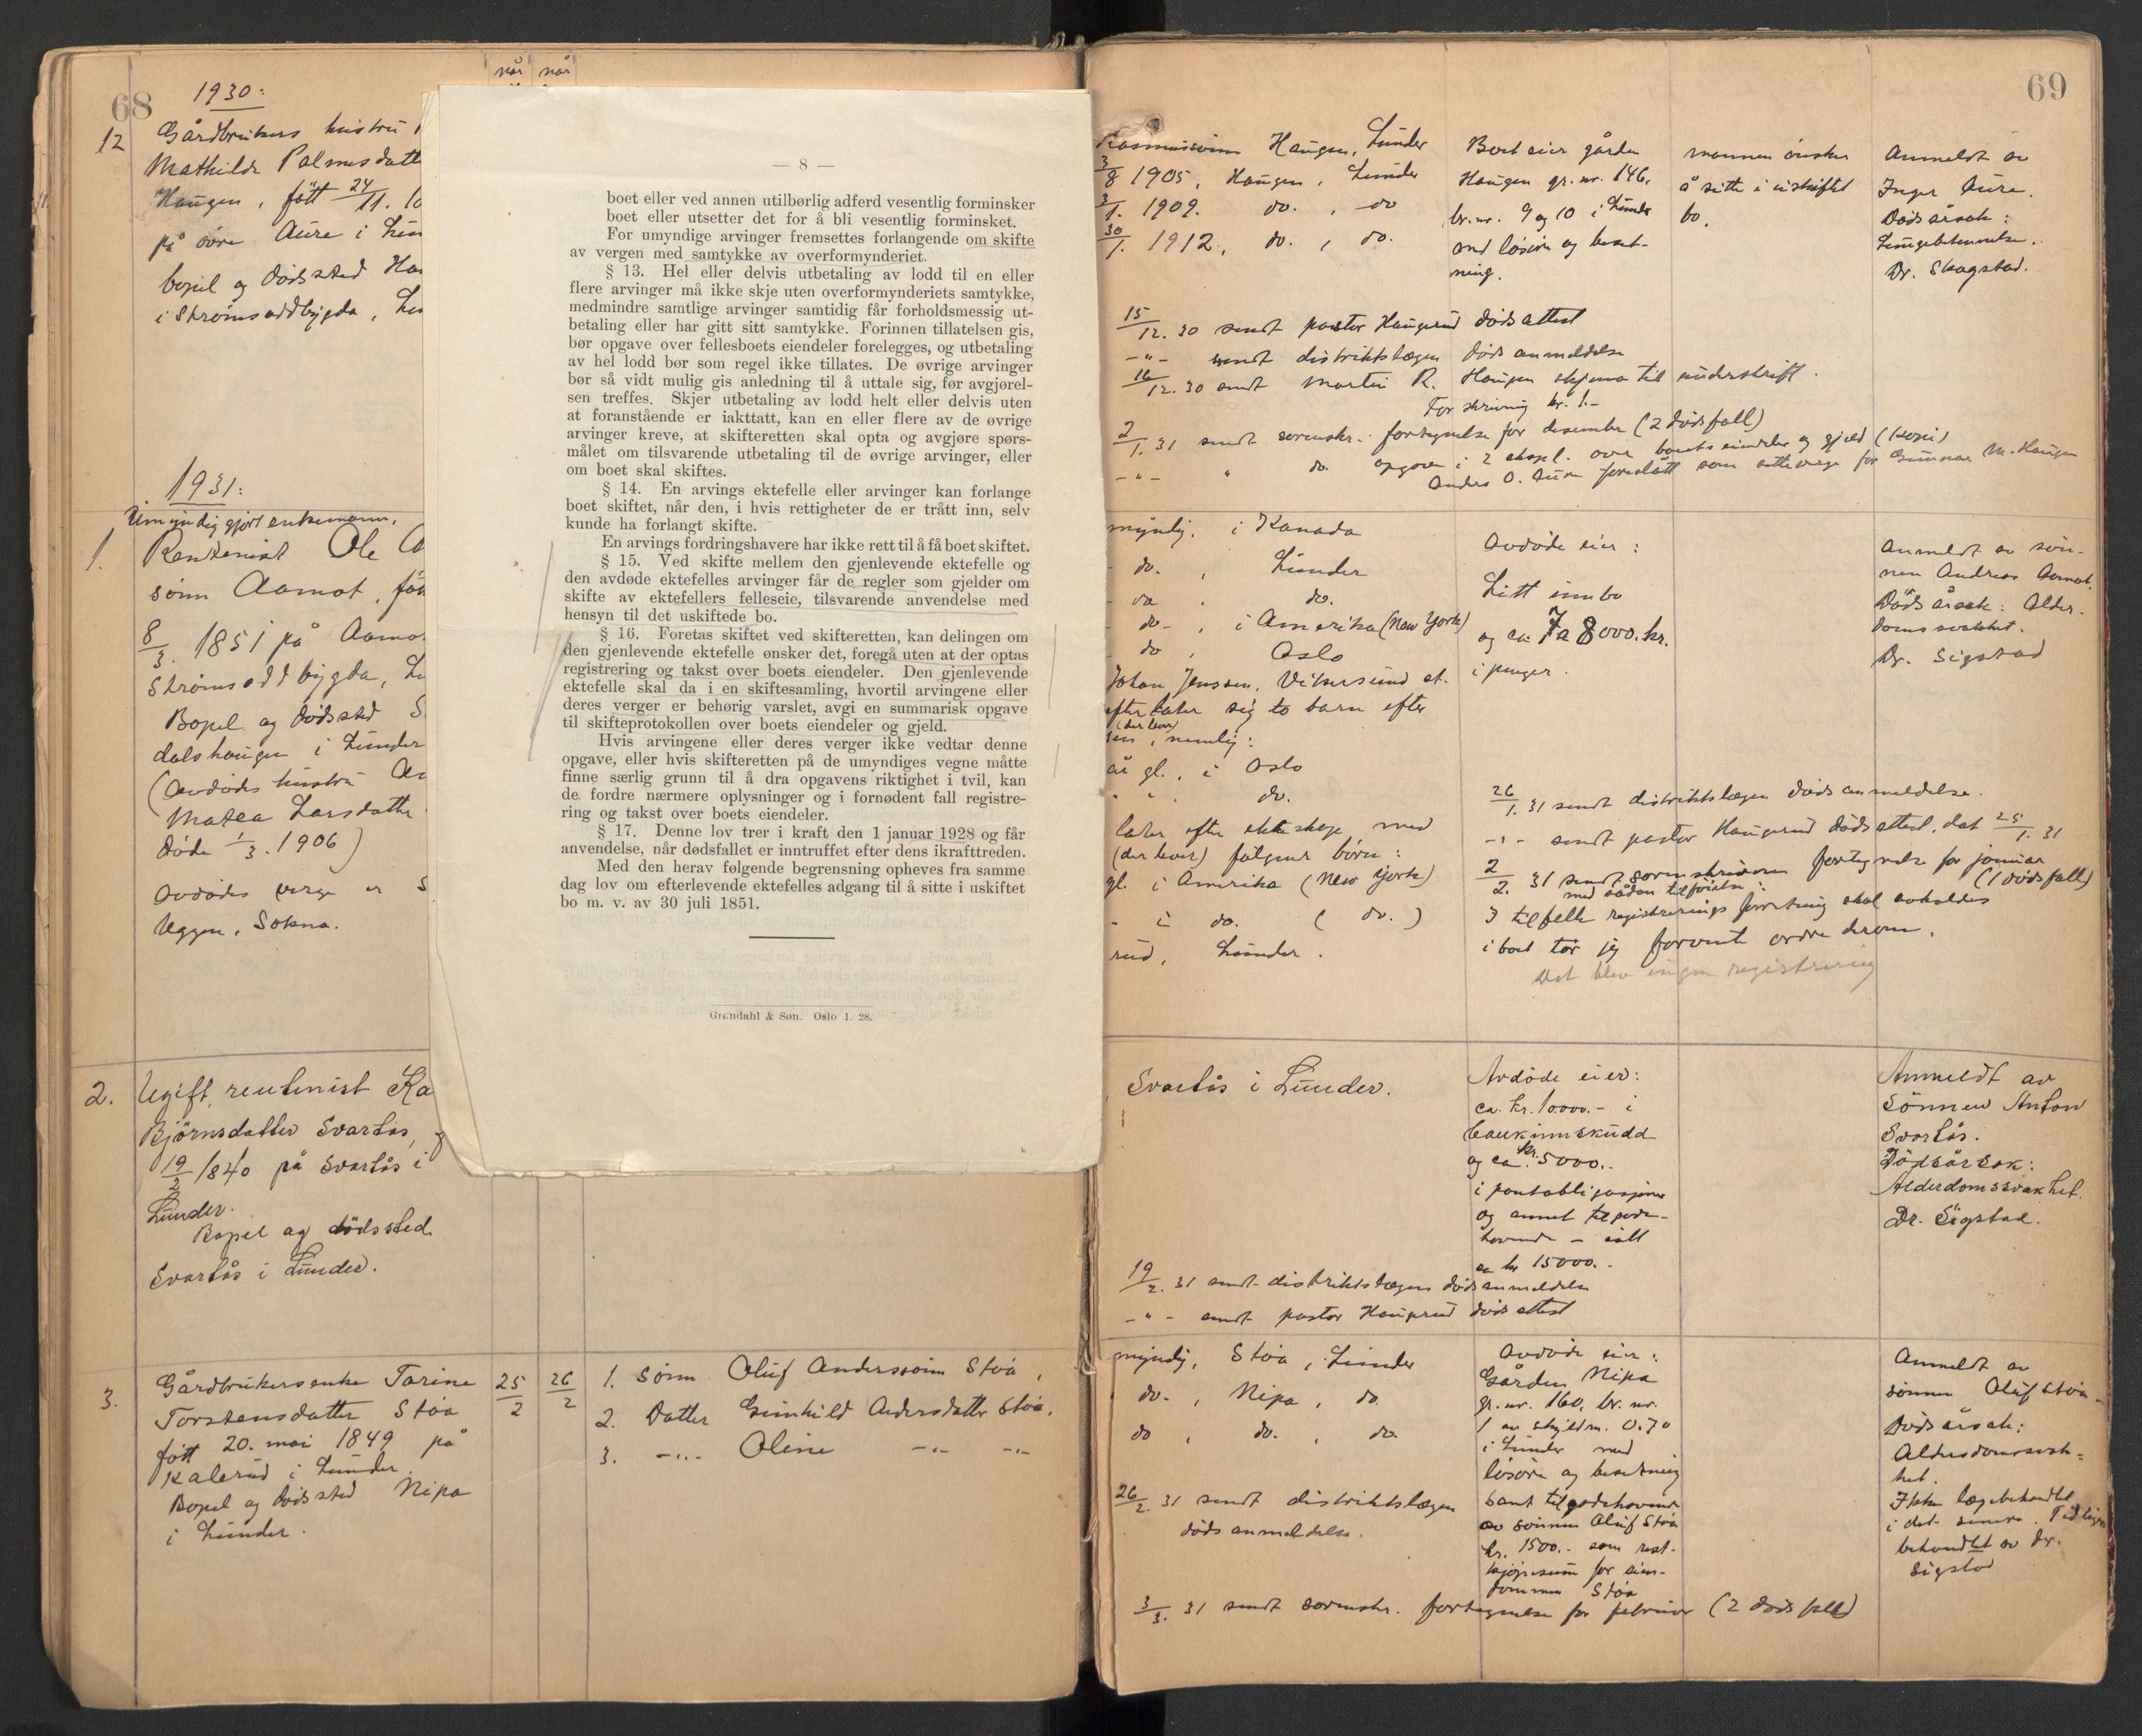 68
når når
1930:
12
Gårdbrukers hustru
Mathilde Palmesdatt
Haugen, fött 24/11.
på övre Aure i
bopel og dödssted
i Strömsoddbygda,
1931:
Umyndiggjort enkemann,
1.
Rentenist Ole
sönn Aamot,
8/3. 1851 på
Strömsoddbygda,
Bopel og dödssted S
dalshaugen i Lunder
(Avdödes hustru
Matea Larsdatter
döde 1/3. 1906)
Avdödes verge er S
Uggen, Sokna.
2.
Ugift, rentenist Ka
Björnsdatter Svartås,
19/2 1840 på Svartås i
Lunder.
Bopel og dödssted
Svartås i Lunder.
3.
Gårdbrukersenke Torine
Torstensdatter Stöa
fött 20. mai 1849 på
Kalerud i Lunder
Bopel og dödssted Nipa
i Lunder.
25/2
26/2
1. Sönn Oluf Anderssönn Stöa,
2. Datter Gunhild Andersdatter Stöa,
3. -"- Oline -"- -"-
— 8 —
boet eller ved annen utilbørlig adferd vesentlig forminsker
boet eller utsetter det for å bli vesentlig forminsket.
For umyndige arvinger fremsettes forlangende om skifte
av vergen med samtykke av overformynderiet.
§ 13. Hel eller delvis utbetaling av lodd til en eller
flere arvinger må ikke skje uten overformynderiets samtykke,
medmindre samtlige arvinger samtidig får forholdsmessig ut-
betaling eller har gitt sitt samtykke. Forinnen tillatelsen gis,
bør opgave over fellesboets eiendeler forelegges, og utbetaling
av hel lodd bør som regel ikke tillates. De øvrige arvinger
bør så vidt mulig gis anledning til å uttale sig, før avgjørel-
sen treffes. Skjer utbetaling av lodd helt eller delvis uten
at foranstående er iakttatt, kan en eller flere av de øvrige
arvinger kreve, at skifteretten skal opta og avgjøre spørs-
målet om tilsvarende utbetaling til de øvrige arvinger, eller
om boet skal skiftes.
§ 14. En arvings ektefelle eller arvinger kan forlange
boet skiftet, når den, i hvis rettigheter de er trått inn, selv
kunde ha forlangt skifte.
En arvings fordringshavere har ikke rett til å få boet skiftet.
§ 15. Ved skifte mellem den gjenlevende ektefelle og
den avdøde ektefelles arvinger får de regler som gjelder om
skifte av ektefellers felleseie, tilsvarende anvendelse med
hensyn til det uskiftede bo.
§ 16. Foretas skiftet ved skifteretten, kan delingen om
den gjenlevende ektefelle ønsker det, foregå uten at der optas
registrering og takst over boets eiendeler. Den gjenlevende
ektefelle skal da i en skiftesamling, hvortil arvingene eller
deres verger er behørig varslet, avgi en summarisk opgave
til skifteprotokollen over boets eiendeler og gjeld.
Hvis arvingene eller deres verger ikke vedtar denne
opgave, eller hvis skifteretten på de umyndiges vegne måtte
finne særlig grunn til å dra opgavens riktighet i tvil, kan
de fordre nærmere oplysninger og i fornødent fall registre-
ring og takst over boets eiendeler.
§ 17. Denne lov trer i kraft den 1 januar 1928 og får
anvendelse, når dødsfallet er inntruffet efter dens ikrafttreden.
Med den herav følgende begrensning opheves fra samme
dag lov om efterlevende ektefelles adgang til å sitte i uskiftet
bo m. v. av 30 juli 1851.
Grøndahl & Søn. Oslo 1. 28.
69
Rasmussönn Haugen, Lunder
3/8 1905, Haugen, Lunder
3/1. 1909. do. , do
30/1. 1912, do. , do.
Boet eier gården
Haugen gr.nr. 146,
br.nr. 9 og 10 i Lunder
med lösöre og beset-
ning.
mannen önsker
å sitte i uskiftet
bo.
Anmeldt av
Inger Aure.
Dödsårsak:
Lungebetennelse.
Dr. Skagstad.
15/12. 30 sendt pastor Haugerud dödsattest
-"- sendt distriktslægen dödsanmeldelse
16/12. 30 sendt Martin R. Haugen skjema til underskrift.
For skriving kr. 1.-
2/1. 31 sendt sorenskr. fortegnelse for desember (2 dödsfall)
-"- " do. opgave i 2 ekspl. over boets eiendeler og gjeld (kopi)
Anders O. Aure foreslått som setteverge for Gunnar M. Haugen
myndig, i Kanada
do. , Lunder
do , do.
do- , i Amerika (New York)
do , Oslo
Johan Jenssen, Vikersund st.
efterlater sig to barn efter
(der lever)
, nemlig:
år gl., i Oslo
" " do.
later efter ekteskap med
(der lever) fölgende börn:
gl. i Amerika (New York)
- i do. ( do. )
rud, Lunder.
Avdöde eier:
Litt innbo
og ca. 7 a 8000. kr.
i penger.
Anmeldt av sön-
nen Andreas Aamot.
Dödsårsak: Alder-
domssvakhet.
Dr. Sigstad
26/1. 31 sendt distriktslægen dödsanmeldelse.
-"- sendt pastor Haugerud dödsattest, dat 25/1. 31
2/2. 31 sendt sorenskriveren fortegnelse for januar
med sådan tilföielse: (1 dödsfall)
I tilfelle registreringsforretning skal avholdes
i boet tör jeg forvente ordre derom.
Det blev ingen registrering
Svartås i Lunder.
Avdöde eier:
ca. kr. 10000.- i
bankinnskudd
og ca. kr. 5000.-
i pantobligasjoner
og annet tilgode-
havende - ialt
ca kr 15000.-
Anmeldt av
Sönnen Anton
Svartås.
Dödsårsak:
Alderdomssvakhet.
Dr. Sigstad.
19/2. 31 sendt distriktslægen dödsanmeldelse
-"- sendt pastor Haugerud dödsattest
myndig, Stöa, Lunder
do- , Nipa , do.
do , do. , do.
Avdöde eier:
Gården Nipa
gr.nr. 160, br. nr.
1 av skyldm. 0.70
i Lunder med
lösöre og besetning
samt tilgodehavende
av sönnen Oluf Stöa
kr. 1500.- som rest-
kjöpesum for eien-
dommen Stöa
Anmeldt av
sönnen Oluf Stöa
Dödsårsak:
Alderdomssvak-
het.
Ikke lægebehandlet
i det senere. Tidligere
behandlet av dr.
Sigstad
26/2. 31 sendt distriktslægen
dödsanmeldelse.
3/3. 31 sendt sorenskr. fortegnelse for februar (2 dödsfall)